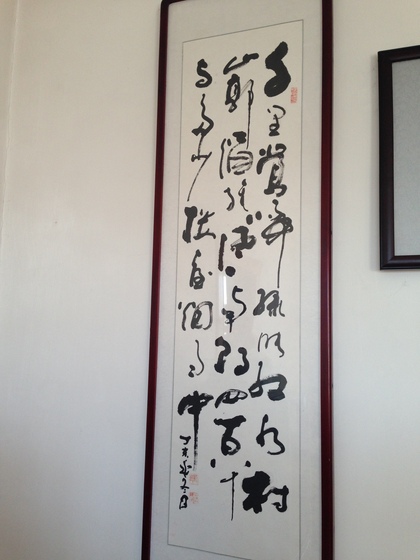 千里鶯啼綠映紅水村
山郭酒旗風南朝四百八十
寺多少樓臺烟雨中
丁亥